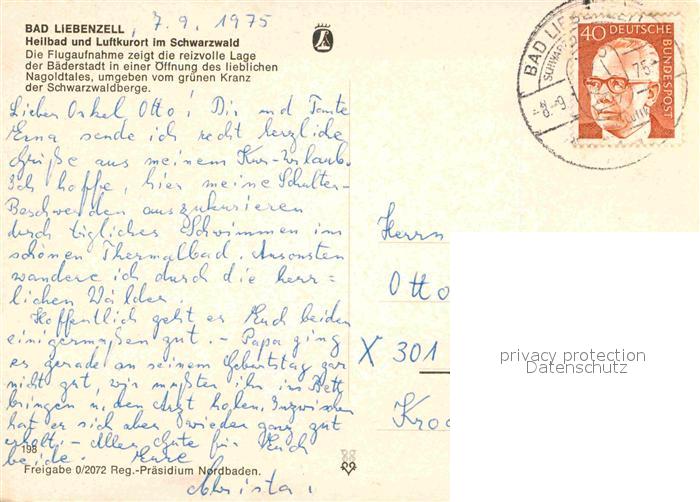 BAD LIEBENZELL , 7.9.1975
Heilbad und Luftkurort im Schwarzwald
Die Flugaufnahme zeigt die reizvolle Lage
der Bäderstadt in einer Öffnung des lieblichen
Nagoldtales, umgeben vom grünen Kranz
der Schwarzwaldberge.
Lieber Onkel Otto! Dir und Tante
Erna sende ich recht herzliche
Grüße aus meinem Kur-Urlaub.
Ich hoffe, hier meine Schulter-
Beschwerden auszukurieren
durch tägliches Schwimmen im
schönen Thermalbad. Ansonsten
wandere ich durch die herr=
lichen Wälder.
Hoffentlich geht es Euch beiden
einigermaßen gut. - Papa ging
es gerade an seinem Geburtstag gar
nicht gut, wir mußten ihn ins Bett
bringen u. den Arzt holen. Inzwischen
hat er sich aber wieder ganz gut
erholt. - Alles Gute für Euch
beide. Eure
Christa.
198
Freigabe 0/2072 Reg.-Präsidium Nordbaden.
BAD LIEBENZELL
40
DEUTSCHE BUNDESPOST
Herrn
Otto
X 301
privacy protection
Datenschutz